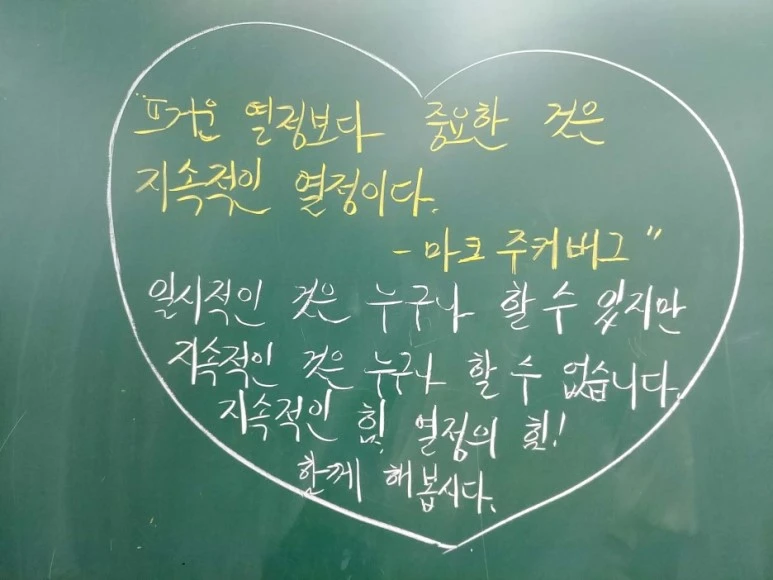 "뜨거운 열정보다 중요한 것은
지속적인 열정이다.
- 마크 주커버그"
일시적인 것은 누구나 할 수 있지만
지속적인 것은 누구나 할 수 없습니다.
지속적인 힘, 열정의 힘!
함께 해봅시다.